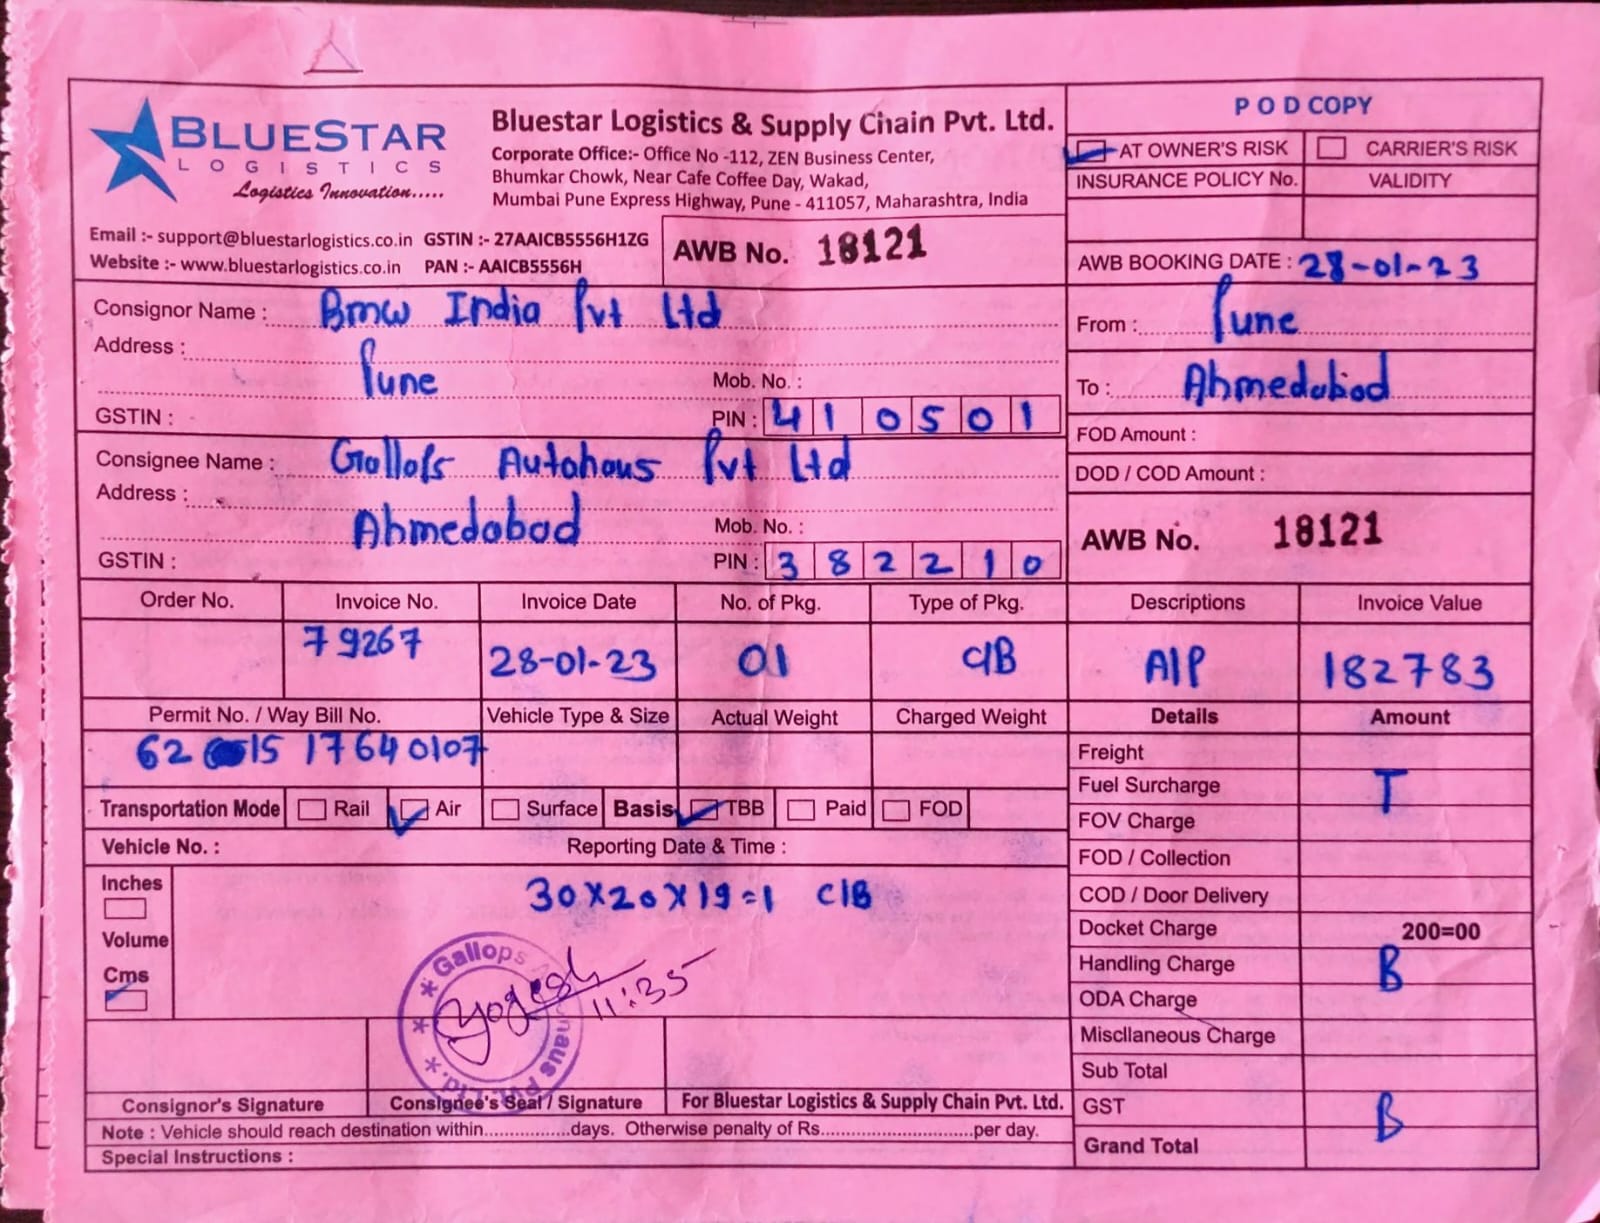 BLUESTAR
LOGISTICS
Logistics Innovation.....
Bluestar Logistics & Supply Chain Pvt. Ltd.
Corporate Office:- Office No -112, ZEN Business Center,
Bhumkar Chowk, Near Cafe Coffee Day, Wakad,
Mumbai Pune Express Highway, Pune - 411057, Maharashtra, India
Email :- support@bluestarlogistics.co.in GSTIN :- 27AAICB5556H1ZG
Website :- www.bluestarlogistics.co.in PAN :- AAICB5556H
AWB No. 18121
POD COPY
AT OWNER'S RISK CARRIER'S RISK
INSURANCE POLICY No. VALIDITY
AWB BOOKING DATE : 28-01-23
Consignor Name : Bmw India Pvt Ltd
Address :
Pune Mob. No. :
GSTIN : PIN : 410501
From : Pune
To : Ahmedabad
Consignee Name : Gallofs Autohous Pvt Ltd
Address :
Ahmedabad Mob. No. :
GSTIN : PIN : 382210
FOD Amount :
DOD / COD Amount :
AWB No. 18121
Order No. Invoice No. Invoice Date No. of Pkg. Type of Pkg. Descriptions Invoice Value
79267 28-01-23 01 C/B A/P 182783
Permit No. / Way Bill No. Vehicle Type & Size Actual Weight Charged Weight Details Amount
62 15 17640107
Transportation Mode Rail Air Surface Basis TBB Paid FOD
Vehicle No. : Reporting Date & Time :
Inches
Volume
Cms
30×20×19=1 C/B
Gallops
Pvt. Ltd.
Yogesh
11:35
Freight
Fuel Surcharge T
FOV Charge
FOD / Collection
COD / Door Delivery
Docket Charge 200=00
Handling Charge B
ODA Charge
Miscllaneous Charge
Sub Total
GST B
Grand Total
Consignor's Signature Consignee's Seal / Signature For Bluestar Logistics & Supply Chain Pvt. Ltd.
Note : Vehicle should reach destination within.................days. Otherwise penalty of Rs.............................per day.
Special Instructions :